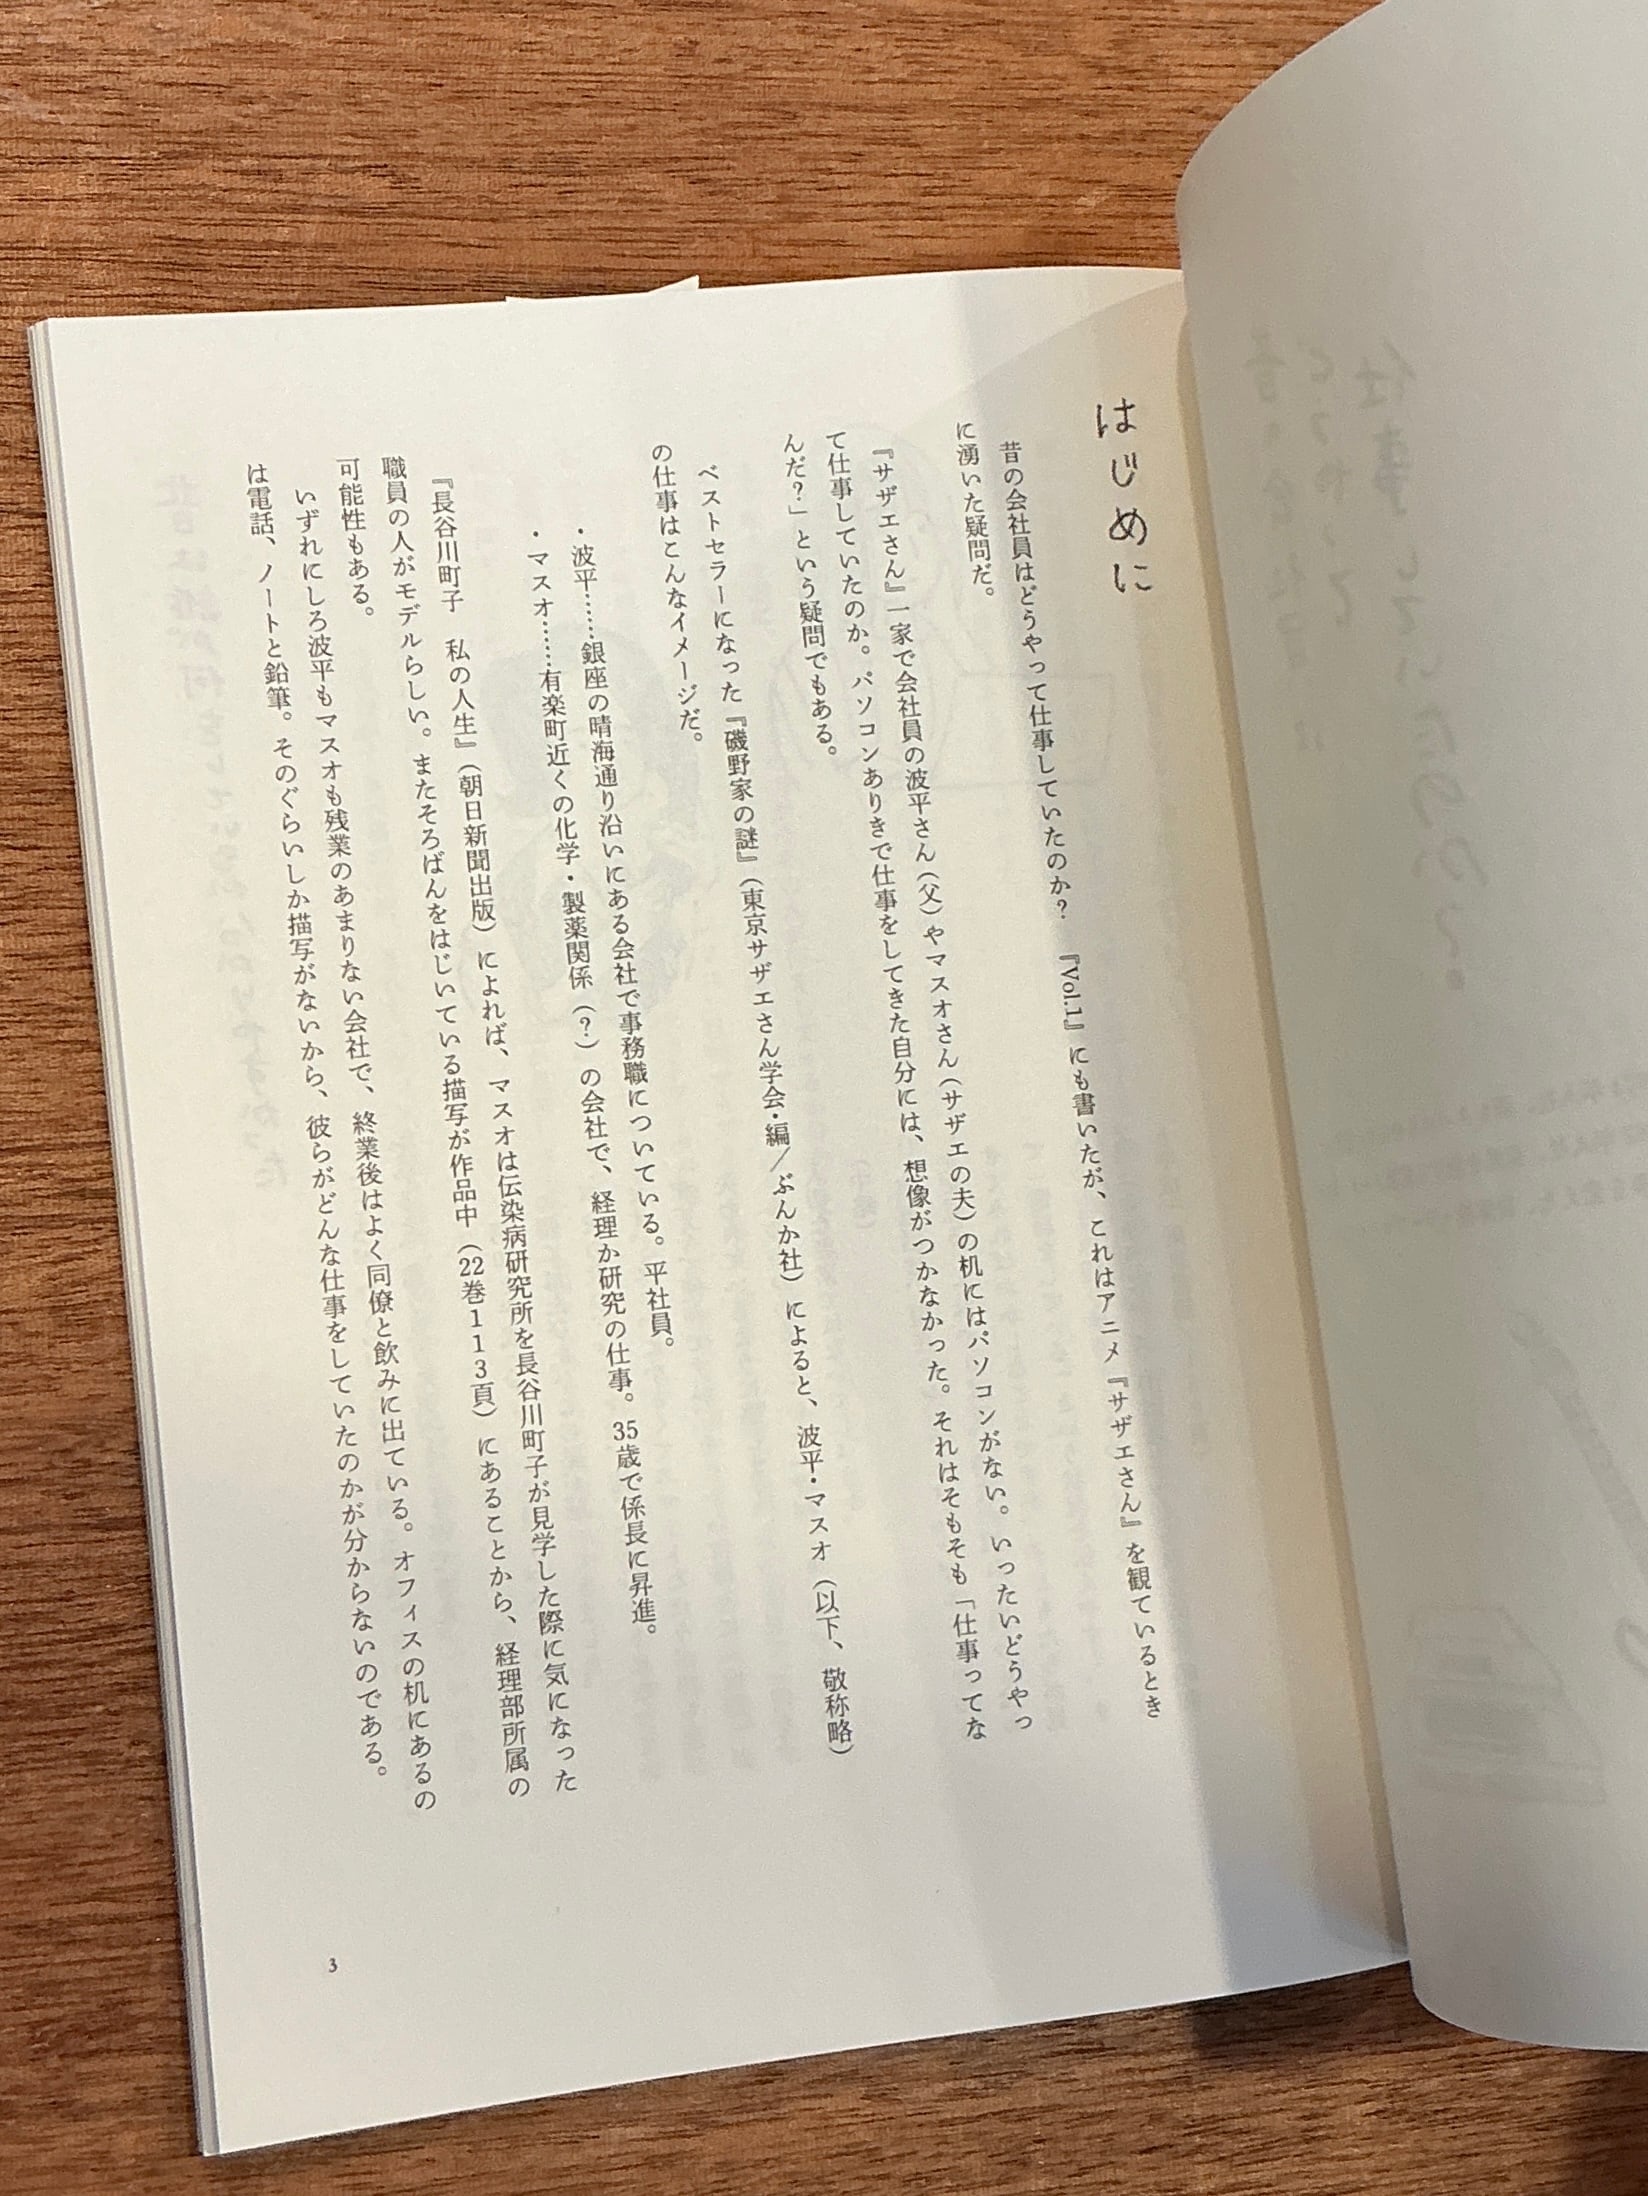 はじめに
昔の会社員はどうやって仕事していたのか？　『Vol.1』にも書いたが、これはアニメ『サザエさん』を観ているとき
に湧いた疑問だ。
『サザエさん』一家で会社員の波平さん（父）やマスオさん（サザエの夫）の机にはパソコンがない。いったいどうやっ
て仕事していたのか。パソコンありきで仕事をしてきた自分には、想像がつかなかった。それはそもそも「仕事ってな
んだ？」という疑問でもある。
ベストセラーになった『磯野家の謎』（東京サザエさん学会・編／ぶんか社）によると、波平・マスオ（以下、敬称略）
の仕事はこんなイメージだ。
・波平……銀座の晴海通り沿いにある会社で事務職についている。平社員。
・マスオ……有楽町近くの化学・製薬関係（？）の会社で、経理か研究の仕事。35歳で係長に昇進。
『長谷川町子　私の人生』（朝日新聞出版）によれば、マスオは伝染病研究所を長谷川町子が見学した際に気になった
職員の人がモデルらしい。またそろばんをはじいている描写が作品中（22巻113頁）にあることから、経理部所属の
可能性もある。
いずれにしろ波平もマスオも残業のあまりない会社で、終業後はよく同僚と飲みに出ている。オフィスの机にあるの
は電話、ノートと鉛筆。そのぐらいしか描写がないから、彼らがどんな仕事をしていたのかが分からないのである。
3